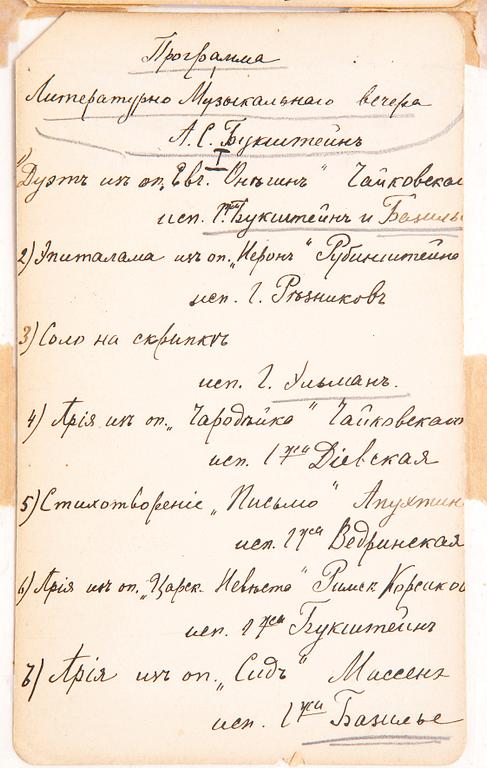 Программа
Литературно Музыкальнаго вечера
А. С. Букштейнъ
I
Дуэтъ изъ оп. „Евг. Онѣгинъ“ Чайковскаг
исп. Г-жи Букштейнъ и Базилье
2) Эпиталама изъ оп. „Неронъ“ Рубинштейна
исп. Г. Рѣзниковъ
3) Соло на скрипкѣ
исп. Г. Ульманъ.
4) Арія изъ оп. „Чародѣйка“ Чайковскаго
исп. Г-жа Діевская
5) Стихотвореніе „Письмо“ Апухтин
исп. Г-жа Ведринская
6) Арія изъ оп. „Царск. Невѣста“ Римск Корсаков
исп. Г-жа Букштейнъ
7) Арія изъ оп. „Сидъ“ Массенэ
исп. Г-жа Базилье